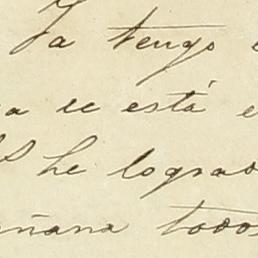 Ya tengo
a se está e
he logrado
añana todos